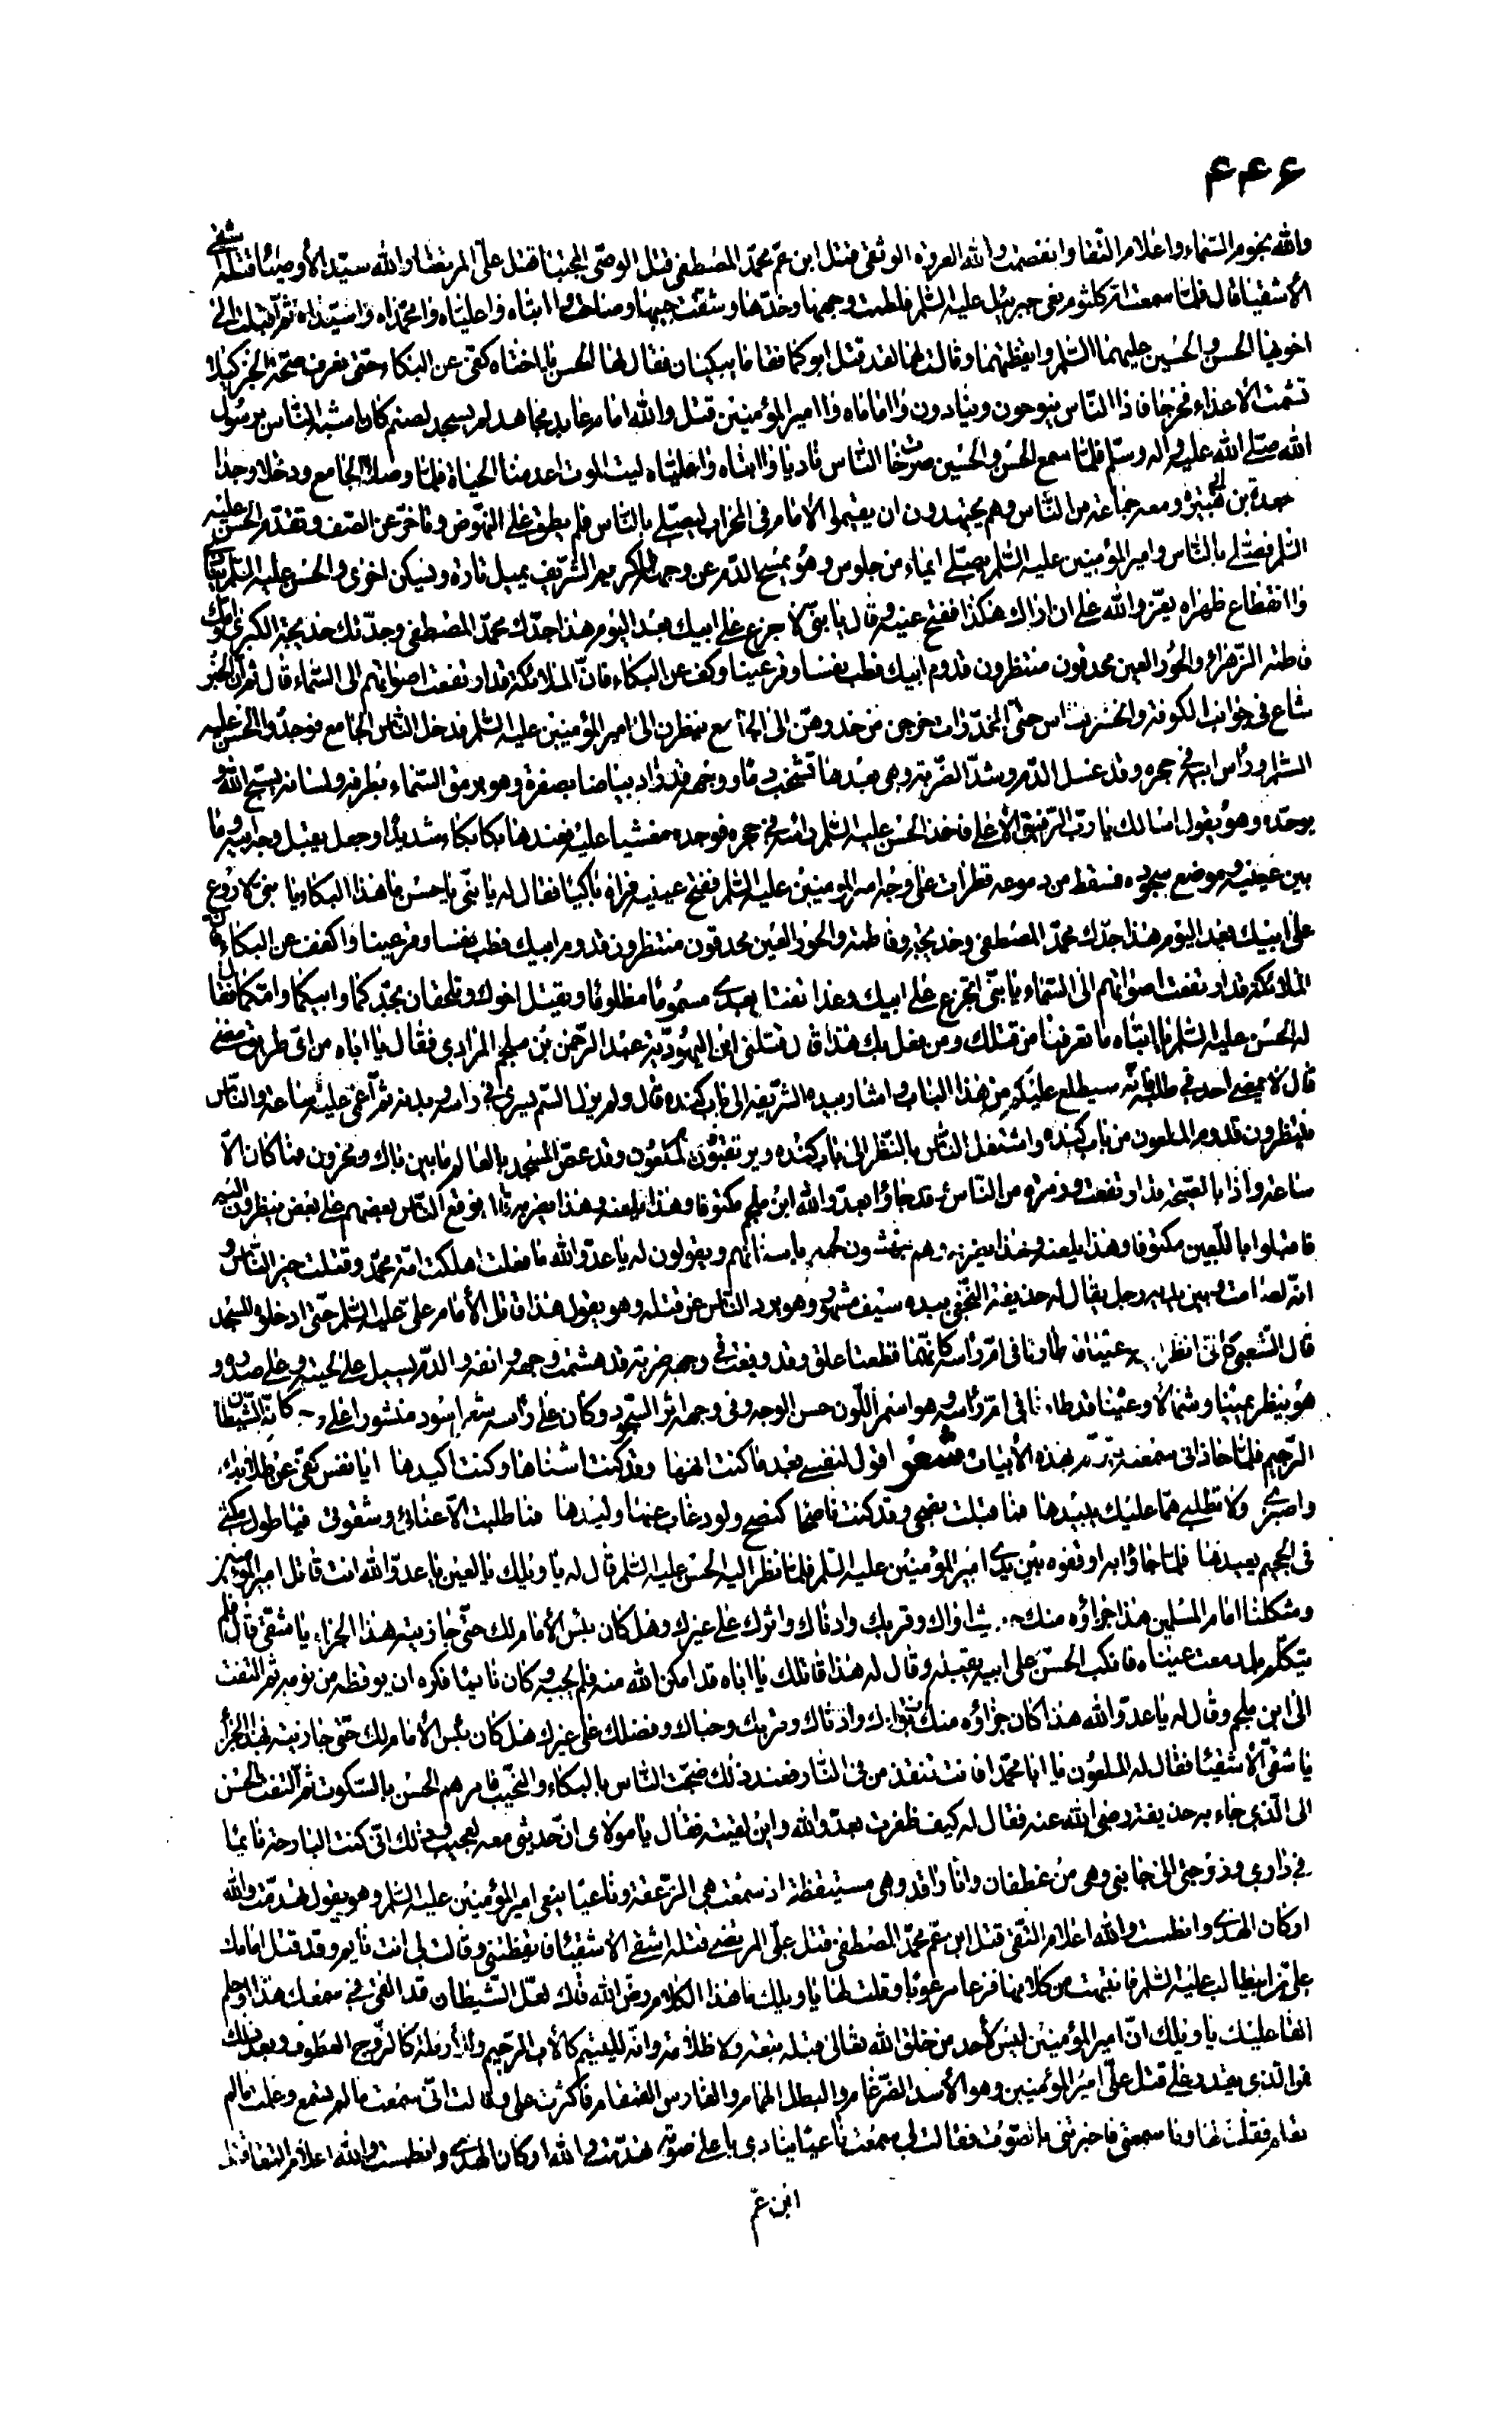 ۴۴۶
والله نجوم السماء واعلام التقا وانفصمت والله العروة الوثقى قتل ابن عم محمد المصطفى قتل الوصى المجتبا قتل على المرتضا والله سيد الأوصيئا قتله اشقى
الأشقيا قال فلما سمعت ام كلثوم نعى جبرئيل عليه السلم فلطمت وجهها وخدها وشقت جيبها وصاحت وا ابتاه وا علياه وا محمداه وا سيداه ثم اقبلت الى
اخويها الحسن والحسين عليهما السلم وايقظتهما وقالت لهما لقد قتل ابوكما فقاما يبكيان فقال لها الحسن يا اختاه كفى عن البكاء حتى نعرف صحة الخبر كيلا
تشمت الأعداء فخرجا فاذا الناس ينوحون وينادون وا اماماه وا امير المؤمنين قتل والله امام عابد مجاهد لم يسجد لصنم كان اشبه الناس برسول
الله صلى الله عليه وآله وسلم فلما سمع الحسن والحسين صرخات الناس ناديا وا ابتاه وا علياه ليت الموت اعدمنا الحياة فلما وصلا الجامع ودخلا وجدا
جعدة بن هبيرة ومعه جماعة من الناس وهم يجتهدون ان يقيموا الأمام فى المحراب ليصلى بالناس فلم يطق على النهوض وتاخر عن الصف وتقدم الحسن عليه
السلم فصلى بالناس وامير المؤمنين عليه السلم يصلى ايماء من جلوس وهو يمسح الدم عن وجهه الكريم الشريف يميل تارة ويسكن اخرى والحسن عليه السلم ينادى
وا انقطاع ظهراه يعز والله على ان اراك هكذا ففتح عينيه وقال يا بنى لا جزع على ابيك بعد اليوم هذا جدك محمد المصطفى وجدتك خديجة الكبرى وامك
فاطمة الزهراء والحور العين محدقون منتظرون قدوم ابيك فطب نفسا وقر عينا وكف عن البكاء فان الملائكة قد ارتفعت اصواتهم الى السماء قال ثم ان الخبر
شاع فى جوانب الكوفة وانحشر الناس حتى المخدرات خرجن من خدورهن الى الجامع ينظرن الى امير المؤمنين عليه السلم فدخل الناس الجامع فوجدوا الحسن عليه
السلم وراس ابيه فى حجره وقد غسل الدم وشد الضربة وهى بعدها تشخب دما ووجهه قد زاد بياضا بصفرة وهو يرمق السماء بطرفه ولسانه يسبح الله و
يوحده وهو يقول اسالك يا رب الرفيق الأعلى فاخذ الحسن عليه السلم راسه فى حجره فوجده مغشيا عليه فعندها بكا بكاء شديدا وجعل يقبل وجه ابيه وما
بين عينيه وموضع سجوده فسقط من دموعه قطرات على وجه امير المؤمنين عليه السلم ففتح عينيه فراه باكيا فقال له يا بنى يا حسن ما هذا البكاء يا بنى لا روع
على ابيك بعد اليوم هذا جدك محمد المصطفى وخديجة وفاطمة والحور العين محدقون منتظرون قدوم ابيك فطب نفسا وقر عينا واكفف عن البكاء فان
الملائكة قد ارتفعت اصواتهم الى السماء يا بنى اتجزع على ابيك وغدا تقتل بعدى مسموما مظلوما ويقتل اخوك وتلحقان بجدكما وابيكما وامكما فقال
له الحسن عليه السلم يا ابتاه ما تعرفنا من قتلك ومن فعل بك هذا قال قتلنى ابن اليهودية عبد الرحمن بن ملجم المرادى فقال يا اباه من اى طريق مضى
قال لا يمضى احد فى طلبه فانه سيطلع عليكم من هذا الباب واشار بيده الشريفه الى باب كنده قال ولم يزل السم يسرى فى راسه وبدنه ثم اغمى عليه ساعة والناس
ينتظرون قدوم الملعون من باب كنده واشتغل الناس بالنظر الى باب كنده ويرتقبون الملعون وقد غص المسجد بالعالم ما بين باك ومحزون فما كان الا
ساعة واذا بالصيحة قد ارتفعت وزمرة من الناس وقد جاؤا بعدو الله ابن ملجم مكتوفا وهذا يلعنه وهذا يضربه قال فوقع الناس بعضهم على بعض ينظرون اليه
فاقبلوا باللعين مكتوفا وهذا يلعنه وهذا يضربه وهم ينهشون لحمه باسنانهم ويقولون له يا عدو الله ما فعلت اهلكت امة محمد وقتلت خير الناس و
انه لصامت وبين يديه رجل يقال له حذيفة النخعى بيده سيف مشهور وهو يرد الناس عن قتله وهو يقول هذا قاتل الأمام على عليه السلم حتى ادخلوه المسجد
قال الشعبى كانى انظر اليه وعيناه قد طارتا فى ام راسه كانهما قطعتا علق وقد وقعت فى وجهه ضربة قد هشمت وجهه وانفه والدم يسيل على لحيته وعلى صدره و
هو ينظر يمينا وشمالا وعيناه قد طارتا فى ام راسه وهو اسمر اللون حسن الوجه وفى وجهه اثر السجود وكان على راسه شعر اسود منشورا على وجهه كانه الشيطان
الرجيم فلما حاذانى سمعته يترنم بهذه الأبيات شعر اقول لنفسى بعد ما كنت انهها وقد كنت اشناها وكنت اكيدها ايا نفس كفى عن طلابك
واصبرى ولا تطلبى هما عليك يبيدها فما قبلت نصحى وقد كنت ناصحا كنصح ولود غاب عنها وليدها فما طلبت الا عنائى وشقوتى فيا طول مكثى
فى الجحيم بعيدها فلما جاؤا به اوقفوه بين يدى امير المؤمنين عليه السلم فلما نظر اليه الحسن عليه السلم قال له يا ويلك يا لعين يا عدو الله انت قاتل امير المؤمنين
ومثكلنا امام المسلمين هذا جزاؤه منك حيث اواك وقربك وادناك واثرك على غيرك وهل كان بئس الأمام لك حتى جازيته هذا الجزاء يا شقى قال فلم
يتكلم بل دمعت عيناه فانكب الحسن على ابيه يقبله وقال له هذا قاتلك يا اباه قد امكن الله منه فلم يجبه وكان نائما فكره ان يوقظه من نومه ثم التفت
الى ابن ملجم وقال له يا عدو الله هذا كان جزاؤه منك بواك وادناك وقربك وحباك وفضلك على غيرك هل كان بئس الأمام لك حتى جازيته بهذا الجزا
يا شقى الأشقيئا فقال له الملعون يا ابا محمد افانت تنقذ من فى النار فعند ذلك ضجت الناس بالبكاء والنحيب فامرهم الحسن بالسكوت ثم التفت الحسن
الى الذى جاء به حذيفة رضى الله عنه فقال له كيف ظفرت بعدو الله واين لقيته فقال يا مولاى ان حديثى معه لعجيب وذلك انى كنت البارحة نائما
فى دارى وزوجتى الى جانبى وهى من غطفان وانا راقد وهى مستيقظة اذ سمعت هى الزعقة وناعيا ينعى امير المؤمنين عليه السلم وهو يقول تهدمت والله
اركان الهدى وانطمست والله اعلام التقى قتل ابن عم محمد المصطفى قتل على المرتضى قتله اشقى الأشقيئا فايقظتنى وقالت لى انت نايم وقد قتل امامك
على بن ابيطالب عليه السلم فانتبهت من كلامها فزعا مرعوبا وقلت لها يا ويلك ما هذا الكلام رض الله فاك لعل الشيطان قد القى فى سمعك هذا او حلم
القا عليك يا ويلك ان امير المؤمنين ليس لأحد من خلق الله تعالى قبله تبعة ولا ظلامة وانه لليتيم كالأب الرحيم وللأرملة كالزوج العطوف وبعد ذلك
فمن الذى يقدر على قتل على امير المؤمنين وهو الأسد الضرغام والبطل الهمام والفارس القمقام فاكثرت على وقالت انى سمعت ما لم تسمع وعلمت ما لم
تعلم فقلت لها وما سمعتى فاخبرتنى بالصوت فقالت لى سمعت ناعيا ينادى باعلى صوته تهدمت والله اركان الهدى وانطمست والله اعلام التقا قتل
ابن عم